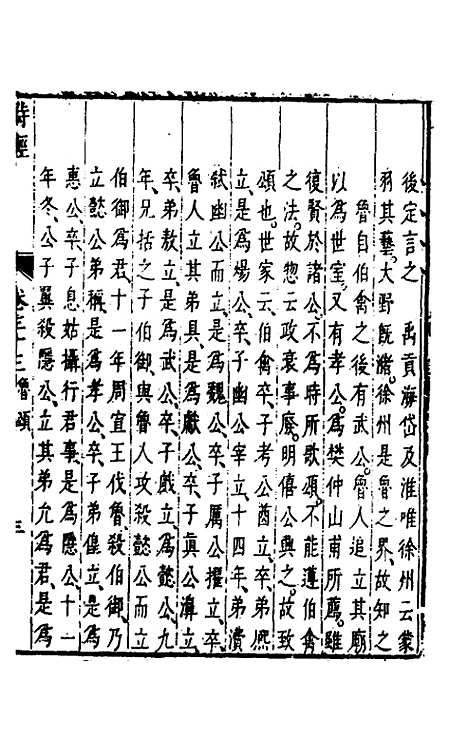 後定言之　禹貢海岱及淮唯徐州云蒙
羽其藝大野既瀦徐州是魯之界故知之
魯自伯禽之後有武公魯人追立其廟
以為世室又有孝公為樊仲山甫所薦雖
復賢於諸公不為時所歌頌不能遵伯禽
之法故惣云政衰事廢明僖公興之故致
頌也世家云伯禽卒子考公酋立卒弟熈
立是為煬公卒子幽公宰立十四年弟潰
弑幽公而立是為魏公卒子厲公擢立卒
魯人立其弟具是為獻公卒子真公濞立
卒弟敖立是為武公卒子戲立為懿公九
年兄括之子伯御與魯人攻殺懿公而立
伯御為君十一年周宣王伐魯殺伯御乃
立懿公弟稱是為孝公卒子弟偟立是為
惠公卒子息姑攝行君事是為隱公十一
年冬公子翬殺隱公立其弟允為君是為
詩經　卷三十三魯頌　三